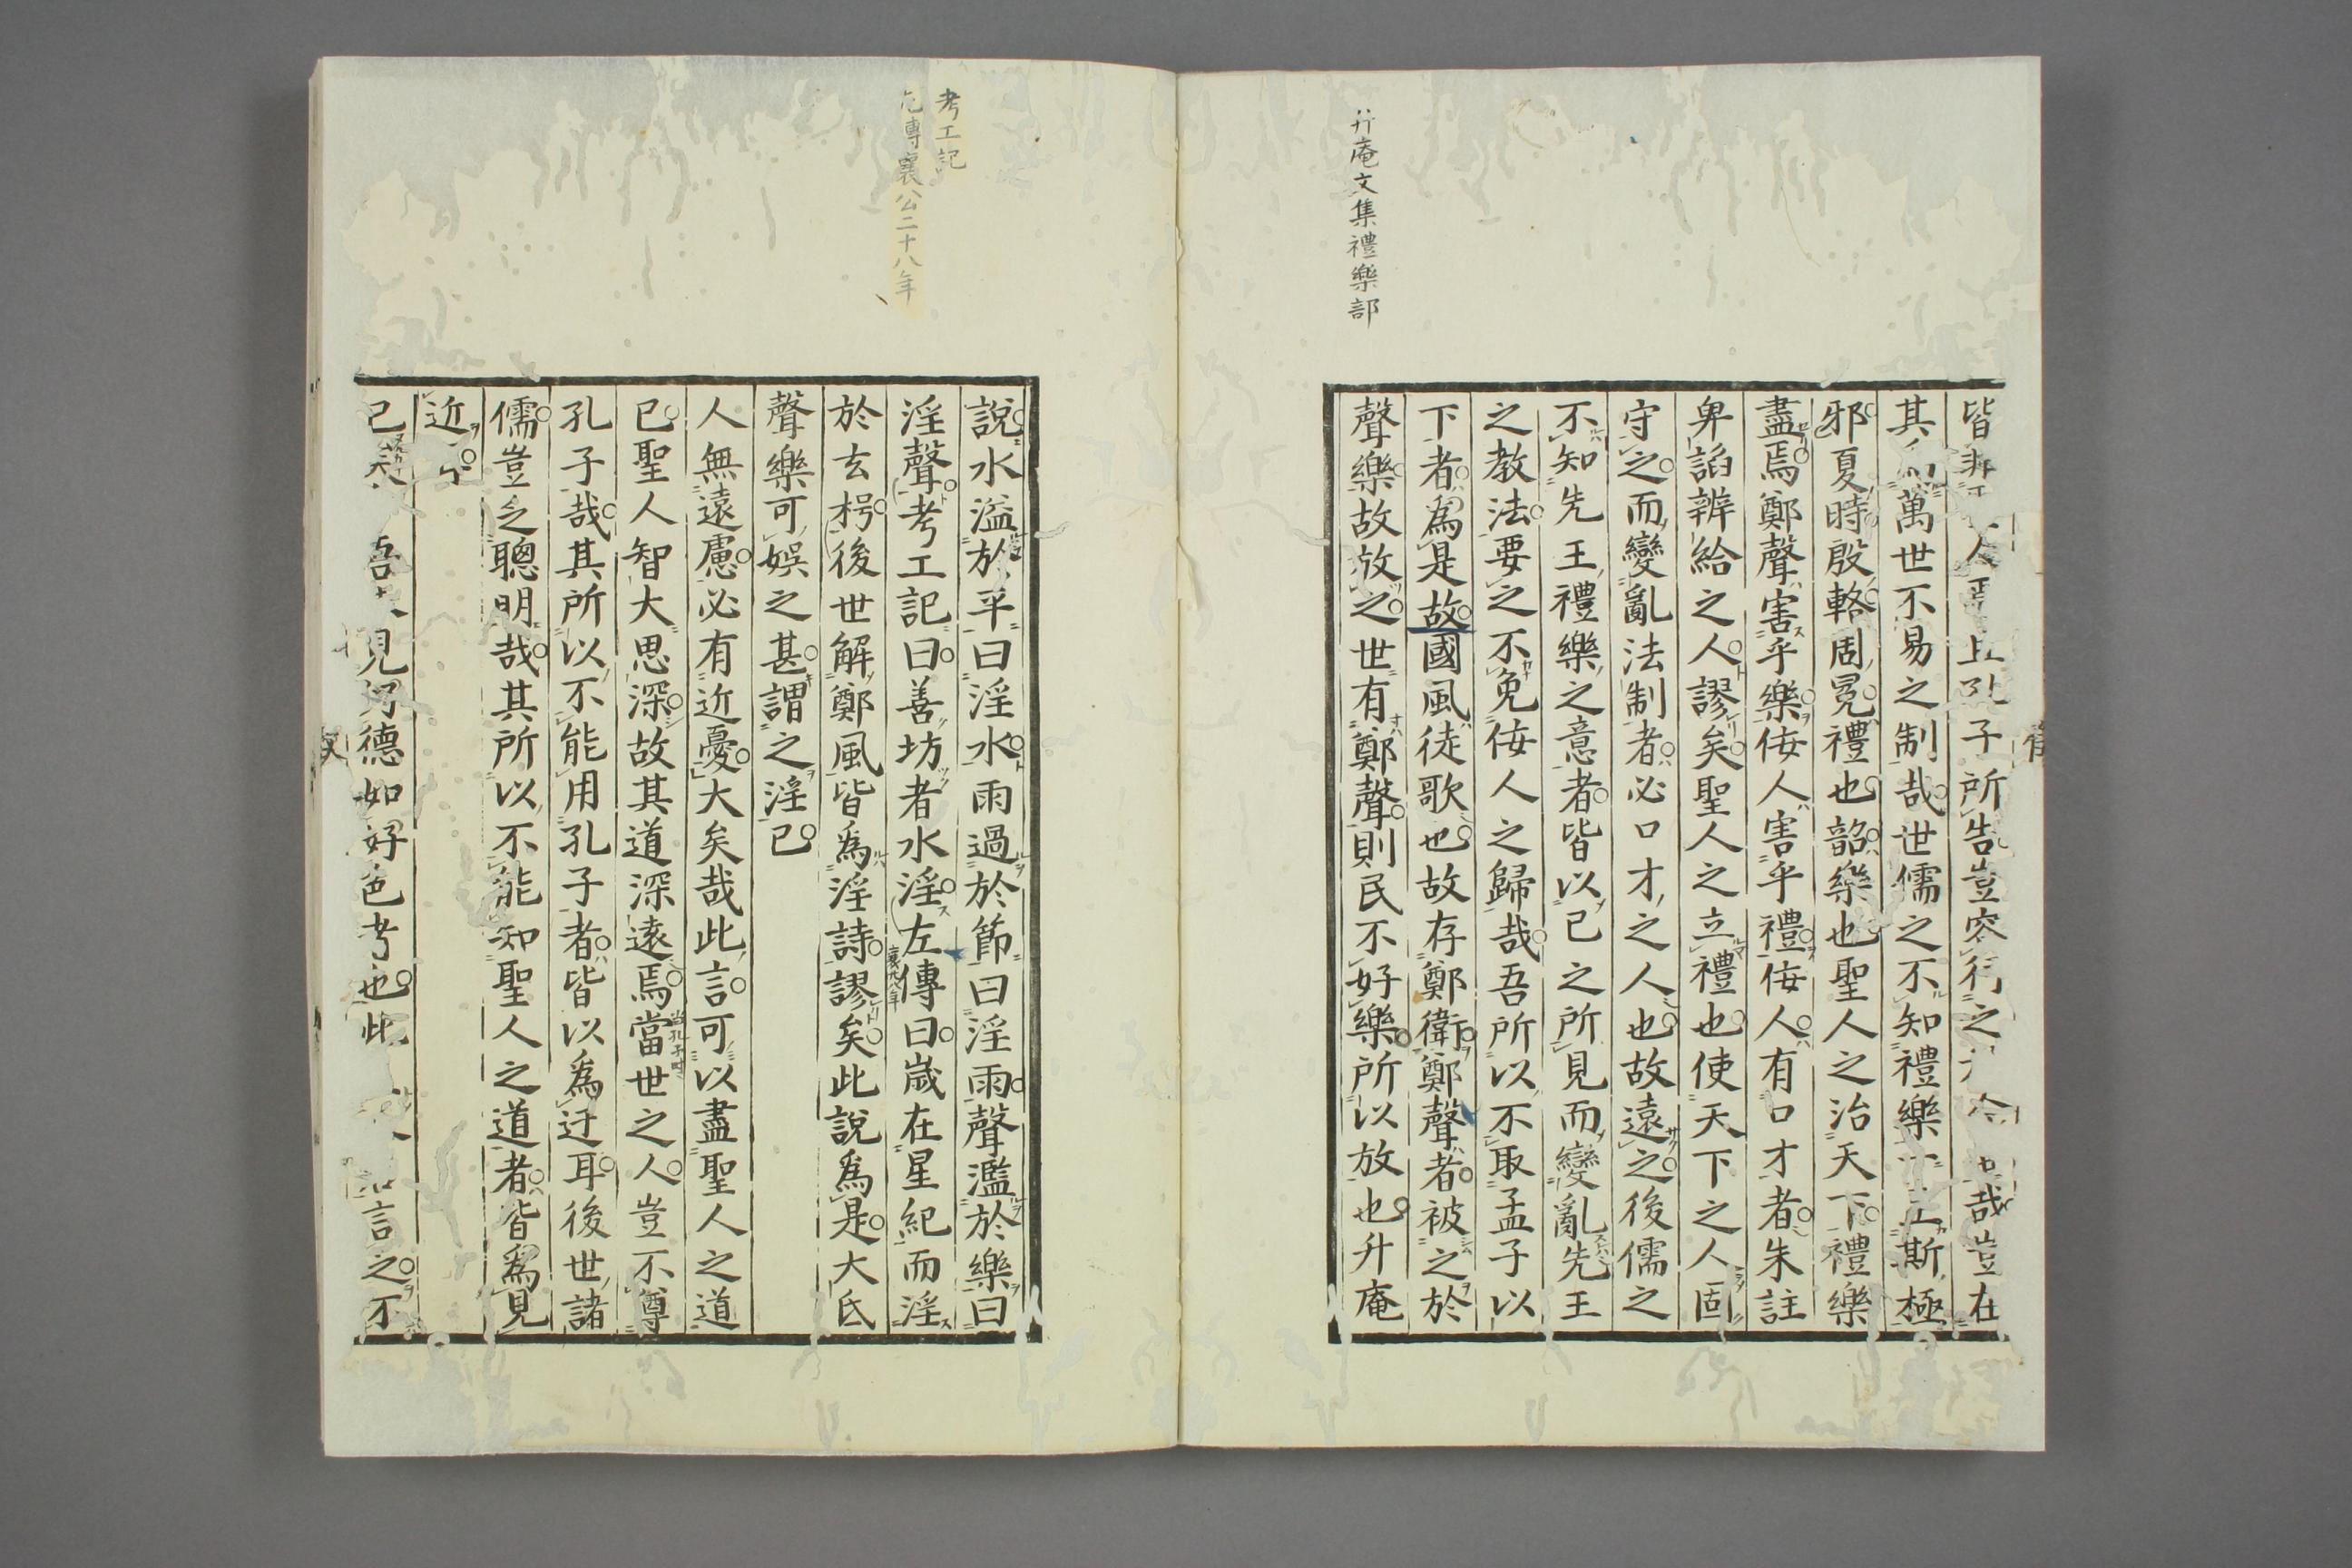 升庵文集禮樂部
子所告豈容行之
哉豈在
其為萬世不易之制哉世儒之不知禮樂
斯極
邪夏時殷輅周冕禮也韶樂也聖人之治天下禮樂
盡焉鄭聲害乎樂佞人害乎禮佞人有口才者朱註
卑諂辨給之人謬矣聖人之立禮也使天下之人固
守之而變亂法制者必口才之人也故遠之後儒之
不知先王禮樂之意者皆以已之所見而變亂先王
之教法要之不免佞人之歸哉吾所以不取孟子以
下者為是故國風徒歌也故存鄭衛鄭聲者被之於
聲樂故放之世有鄭聲則民不好樂所以放也升庵
考工記
左傳襄公二十八年
說水溢於平曰淫水雨過於節曰淫雨聲濫於樂曰
淫聲考工記曰善坊者水淫左傳曰歲在星紀而淫
襄廿八年
於玄枵後世解鄭風皆為淫詩謬矣此說為是大氐
聲樂可娛之甚謂之淫已
人無遠慮必有近憂大矣哉此言可以盡聖人之道
已聖人智大思深故其道深遠焉當世之人豈不尊
当孔子時
孔子哉其所以不能用孔子者皆以為迂耳後世諸
儒豈乏聰明哉其所以不能知聖人之道者皆為見
近
已
吾
見好德如好色者也此
言之不